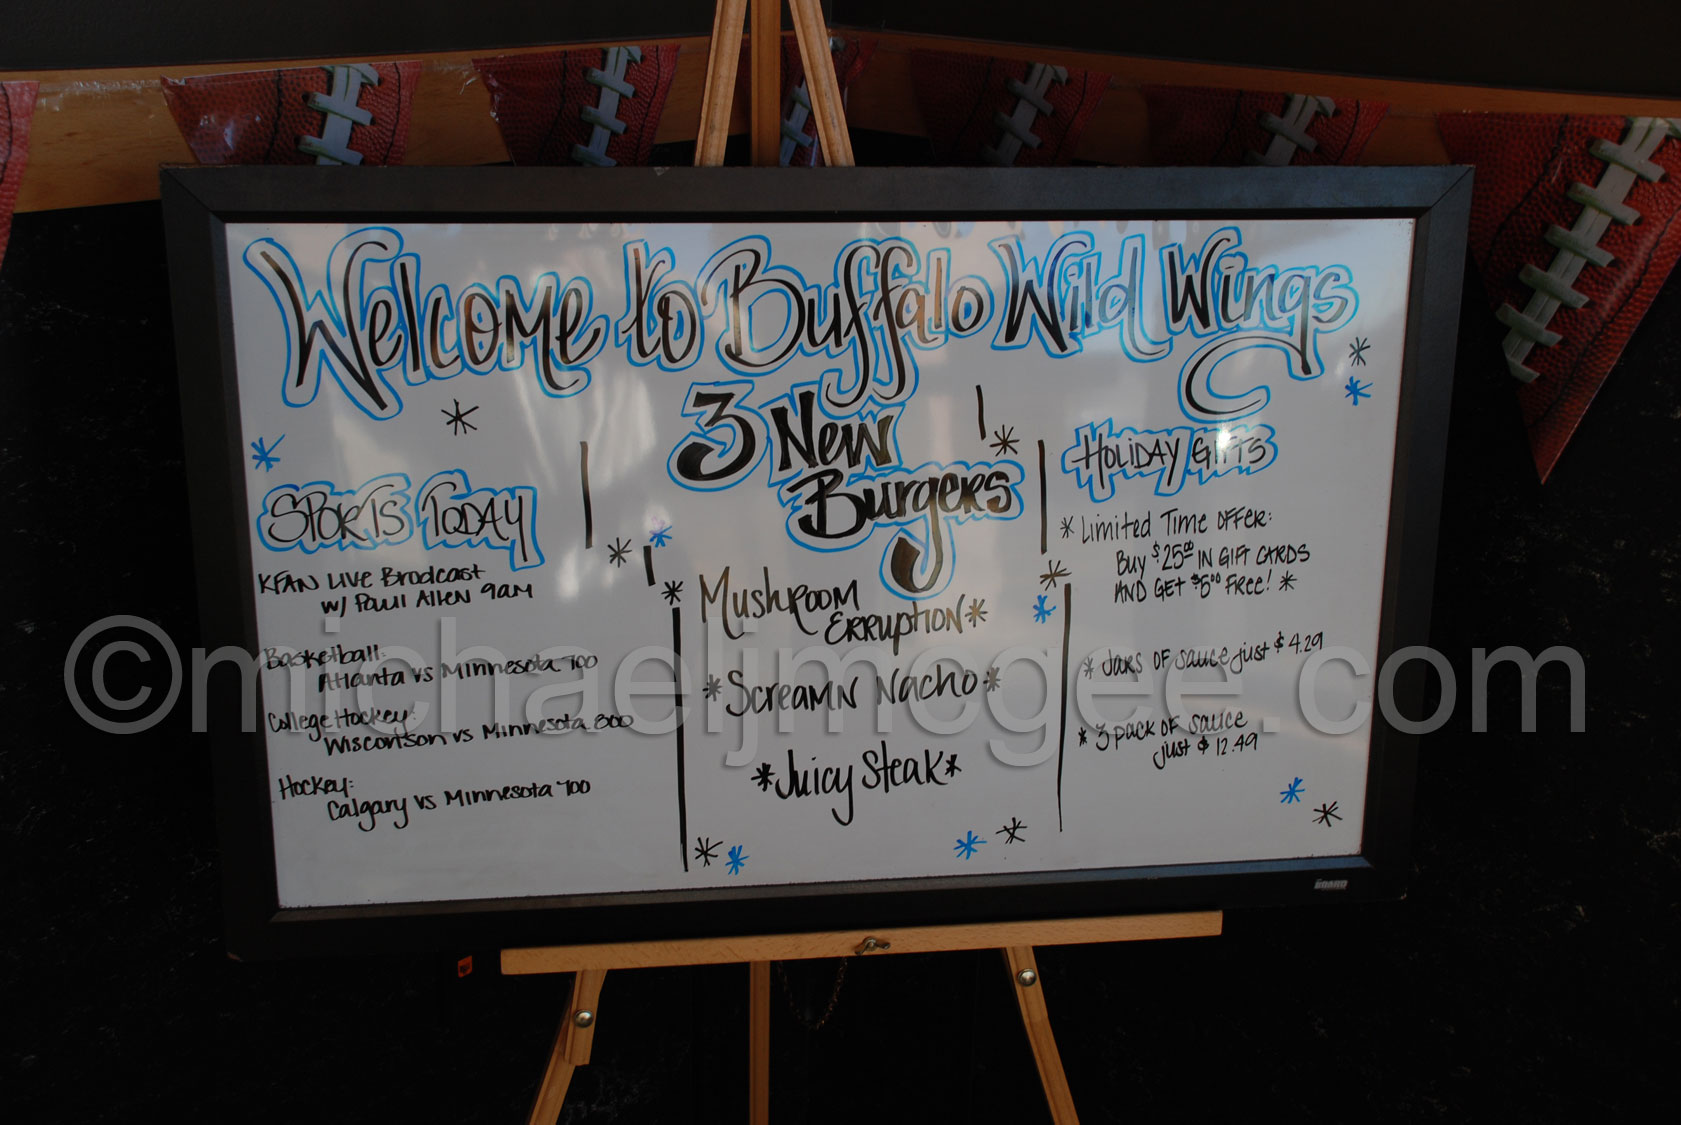 Welcome to Buffalo Wild Wings
SPORTS TODAY
KFAN LIVE Brodcast
w/ Paul Allen 9am
Basketball:
Atlanta vs Minnesota 700
College Hockey:
Wisconson vs Minnesota 800
Hockey:
Calgary vs Minnesota 700
3 New
Burgers
Mushroom
Erruption*
*Screamn Nacho*
*Juicy Steak*
HOLIDAY GIFTS
* Limited Time Offer:
Buy $25.00 in gift cards
and get $5.00 free! *
* Jars of sauce just $4.29
* 3 pack of sauce
just $12.49
BOARD
©michaeljmcgee.com